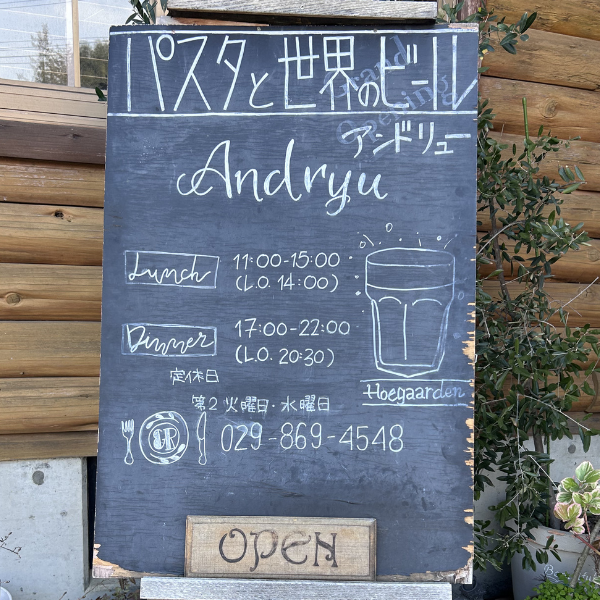 パスタと世界のビール
Grand
Opening
アンドリュー
Andryu
Lunch 11:00-15:00
(L.O. 14:00)
Dinner 17:00-22:00
(L.O. 20:30)
定休日
第2 火曜日・水曜日
029-869-4548
Hoegaarden
OPEN